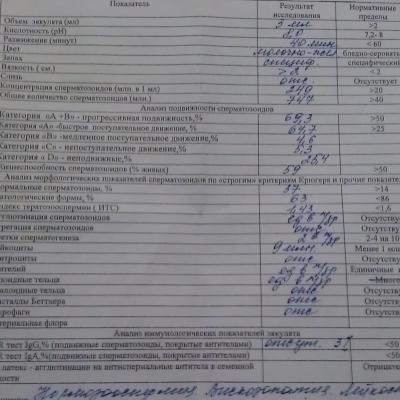 Показатель Результат исследования Нормативные пределы
Объем эякулята (мл) 3 мл >2
Кислотность (pH) 8,0 7,2- 8
Разжижение (минут) 40 мин < 60
Цвет молочно- бледно-сероваты
Запах специф. специфический
Вязкость ( см.) > 2 < 2
Слизь отс. Отсутствует
Концентрация сперматозоидов (млн. в 1 мл) 240 >20
Общее количество сперматозоидов (млн.) 747 >40
Анализ подвижности сперматозоидов
Категория «А +В» - прогрессивная подвижность,% 69,3 >50
Категория «А» -быстрое поступательное движение,% 64,7 >25
Категория «В» -медленное поступательное движение,% 4,6
Категория «С» - непоступательное движение,% 5,3
Категория « D» - неподвижные,% 25,4
Жизнеспособность сперматозоидов (% живых) 59 >50
Анализ морфологических показателей сперматозоидов по «строгим» критериям Крюгера и прочие показате
ормальные сперматозоиды, % 37 >14
атологические формы, % 63 <86
ндекс тератозооспермии ( ИТС) 1,43 <1,6
глютинация сперматозоидов ед в п/зр Отсутствует
грегация сперматозоидов отс Отсутству
етки сперматогенеза 2 в п/зр 2-4 на 10
йкоциты 9 млн. Менее 1 мл
итроциты отс Отсутству
ителий ед в п/зр Единичные
лоидные тельца ед в п/зр Много
алоидные тельца отс Отсутств
исталлы Беттхера отс Отсутству
крофаги отс Отсутству
ктериальная флора
Анализ иммунологических показателей эякулата
R тест IgG,% (подвижные сперматозоиды, покрытые антителами) отсут. <50
R тест IgA,%(подвижные сперматозоиды, покрытые антителами) <50
латекс - агглютинация на антиспермальные антитела в семенной Отрицате
кости
Нормозооспермия. Вископатия. Лейкос